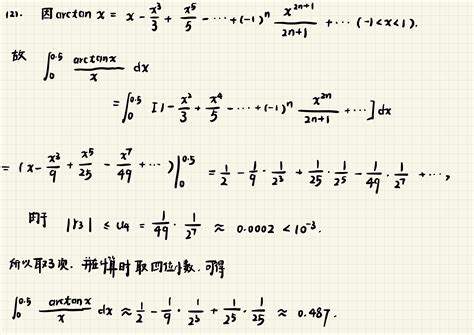 (2). 因 arctan x = x - x³/3 + x⁵/5 - ··· + (-1)ⁿ x²ⁿ⁺¹/(2n+1) + ··· (-1<x<1).
故
∫₀^0.5 arctanx/x dx
= ∫₀^0.5 [1 - x²/3 + x⁴/5 - ··· + (-1)ⁿ x²ⁿ/(2n+1) + ···] dx
= (x - x³/9 + x⁵/25 - x⁷/49 + ···)|₀^0.5 = 1/2 - 1/9 · 1/2³ + 1/25 · 1/2⁵ - 1/49 · 1/2⁷ + ···,
由于 |r₃| ≤ u₄ = 1/49 · 1/2⁷ ≈ 0.0002 < 10⁻³.
所以取3项. 并在计算时取四位小数. 可得
∫₀^0.5 arctanx/x dx ≈ 1/2 - 1/9 · 1/2³ + 1/2⁵ · 1/25 ≈ 0.487.